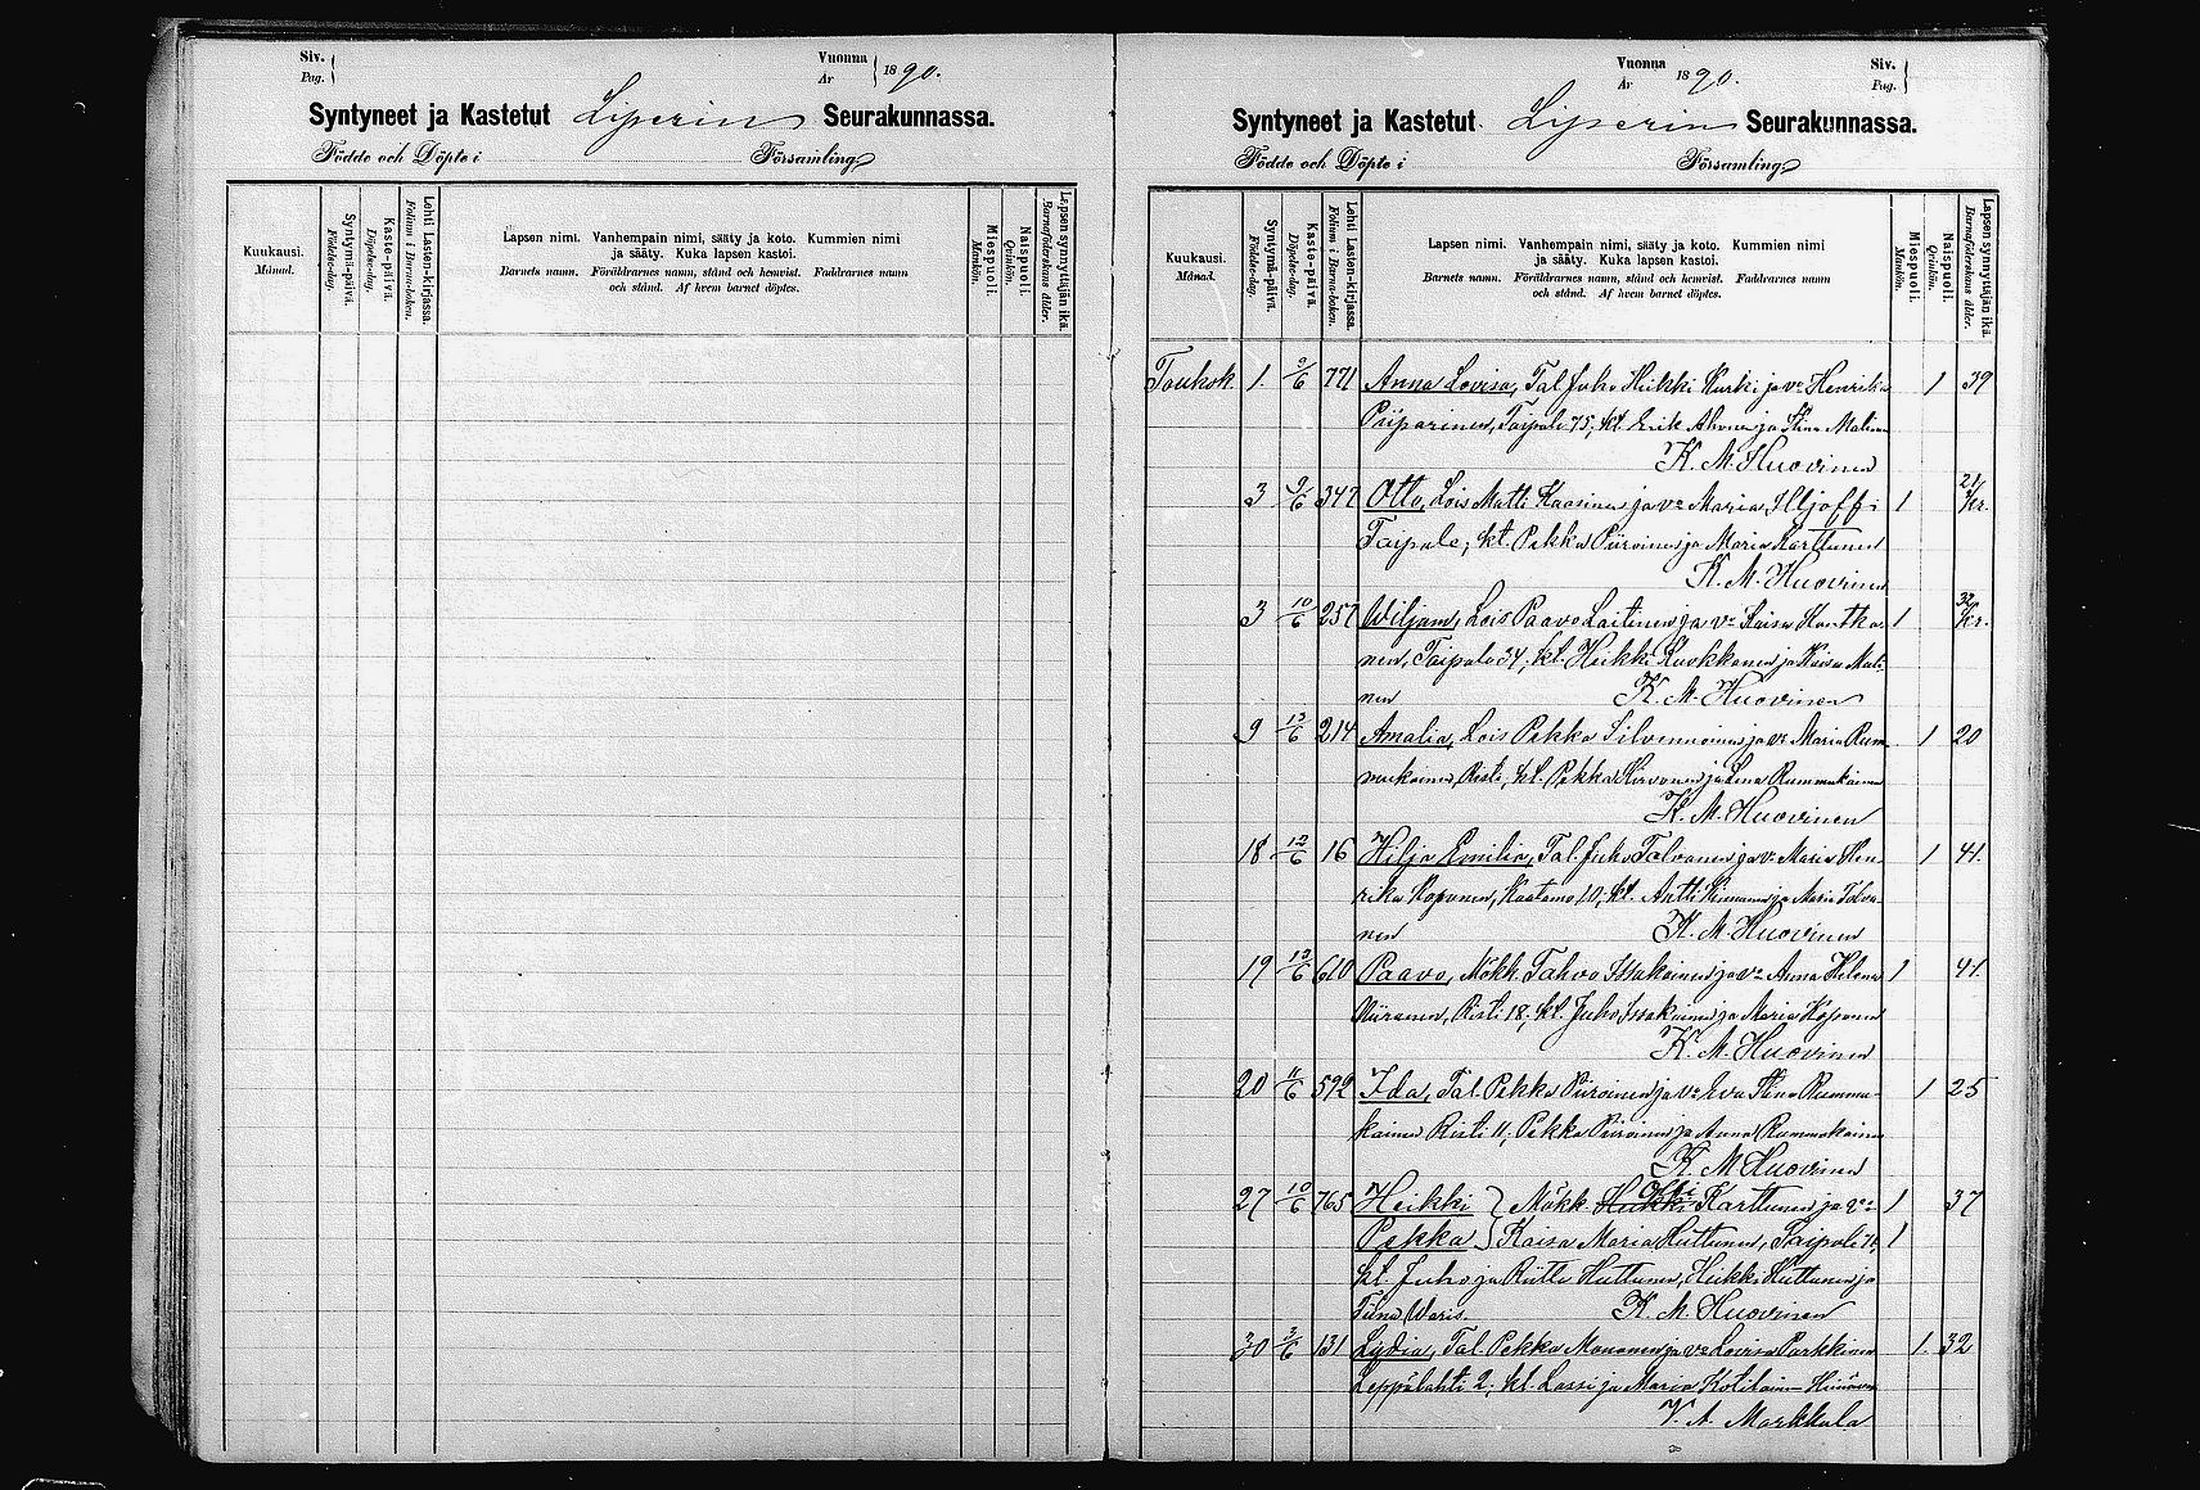 Siv.
Pag.
Vuonna
År
1890.
Syntyneet ja Kastetut Liperin Seurakunnassa.
Födde och Döpte i Församling
Kuukausi.
Månad.
Syntymä-päivä.
Födelse-dag.
Kaste-päivä.
Döpelse-dag.
Lehti Lasten-kirjassa.
Folium i Barna-boken.
Lapsen nimi. Vanhempain nimi, sääty ja koto. Kummien nimi
ja sääty. Kuka lapsen kastoi.
Barnets namn. Föräldrarnes namn, stånd och hemvist. Faddrarnes namn
och stånd. Af hvem barnet döptes.
Miespuoli.
Mankön.
Naispuoli.
Qvinkön.
Lapsen synnyttäjän ikä.
Barnaföderskans ålder.
Vuonna
År
1890.
Siv.
Pag.
Syntyneet ja Kastetut Liperin Seurakunnassa.
Födde och Döpte i Församling
Kuukausi.
Månad.
Syntymä-päivä.
Födelse-dag.
Kaste-päivä.
Döpelse-dag.
Lehti Lasten-kirjassa.
Folium i Barna-boken.
Lapsen nimi. Vanhempain nimi, sääty ja koto. Kummien nimi
ja sääty. Kuka lapsen kastoi.
Barnets namn. Föräldrarnes namn, stånd och hemvist. Faddrarnes namn
och stånd. Af hvem barnet döptes.
Miespuoli.
Mankön.
Naispuoli.
Qvinkön.
Lapsen synnyttäjän ikä.
Barnaföderskans ålder.
Toukok. 1. 9/6 771 Anna Lovisa, Tal. Juho Heikki Kurki ja vo Henrika 1 39
Piiparinen, Taipale 75; kt. Erik Ahonen ja Stina Malinen
K. M. Huovinen
3 9/6 347 Otto, Lois Matti Kaasinen ja vo Maria Iljoff 1 21/kr.
Taipale; kt. Pekka Piiroinen ja Maria Karttunen
K. M. Huovinen
3 10/6 257 Wiljam, Lois Paavo Laitinen ja vo Kaisa Kontka- 1 32/kr.
nen, Taipale 34; kt. Heikki Kuokkanen ja Kaisa Mali-
nen K. M. Huovinen
9 13/6 214 Amalia, Lois Pekka Silvennoinen ja vo Maria Rum- 1 20
mukainen, Risti, kt. Pekka Hirvonen ja Lena Rummukainen
K. M. Huovinen
18 12/6 16 Hilja Emilia, Tal. Juho Tolvanen ja vo Maria Hen- 1 41.
rika Koponen, Kaatamo 10; kt. Antti Kinnunen ja Maria Tolva-
nen K. M. Huovinen
19 13/6 610 Paavo, Mökk. Tahvo Issakainen ja vo Anna Helena 1 41.
Niiranen, Risti 18; kt. Juho Issakainen ja Maria Koponen
K. M. Huovinen
20 11/6 592 Ida, Tal. Pekka Piiroinen ja vo Eva Stina Rummu- 1 25
kainen Risti 11; Pekka Piiroinen ja Anna Rummukainen
K. M Huovinen
27 10/6 765 Heikki } Mökk. Heikki Olli Karttunen ja vo 1 37
Pekka } Kaisa Maria Huttunen, Taipale 1
kt. Juho ja Riitta Huttunen, Heikki Huttunen ja
Tiina Waris. K. M. Huovinen
30 3/6 131 Lydia, Tal. Pekka Mononen ja vo Lovisa Parkkinen 1. 32
Leppälahti 2; kt. Lassi ja Maria Kotilainen
V. A. Markkula